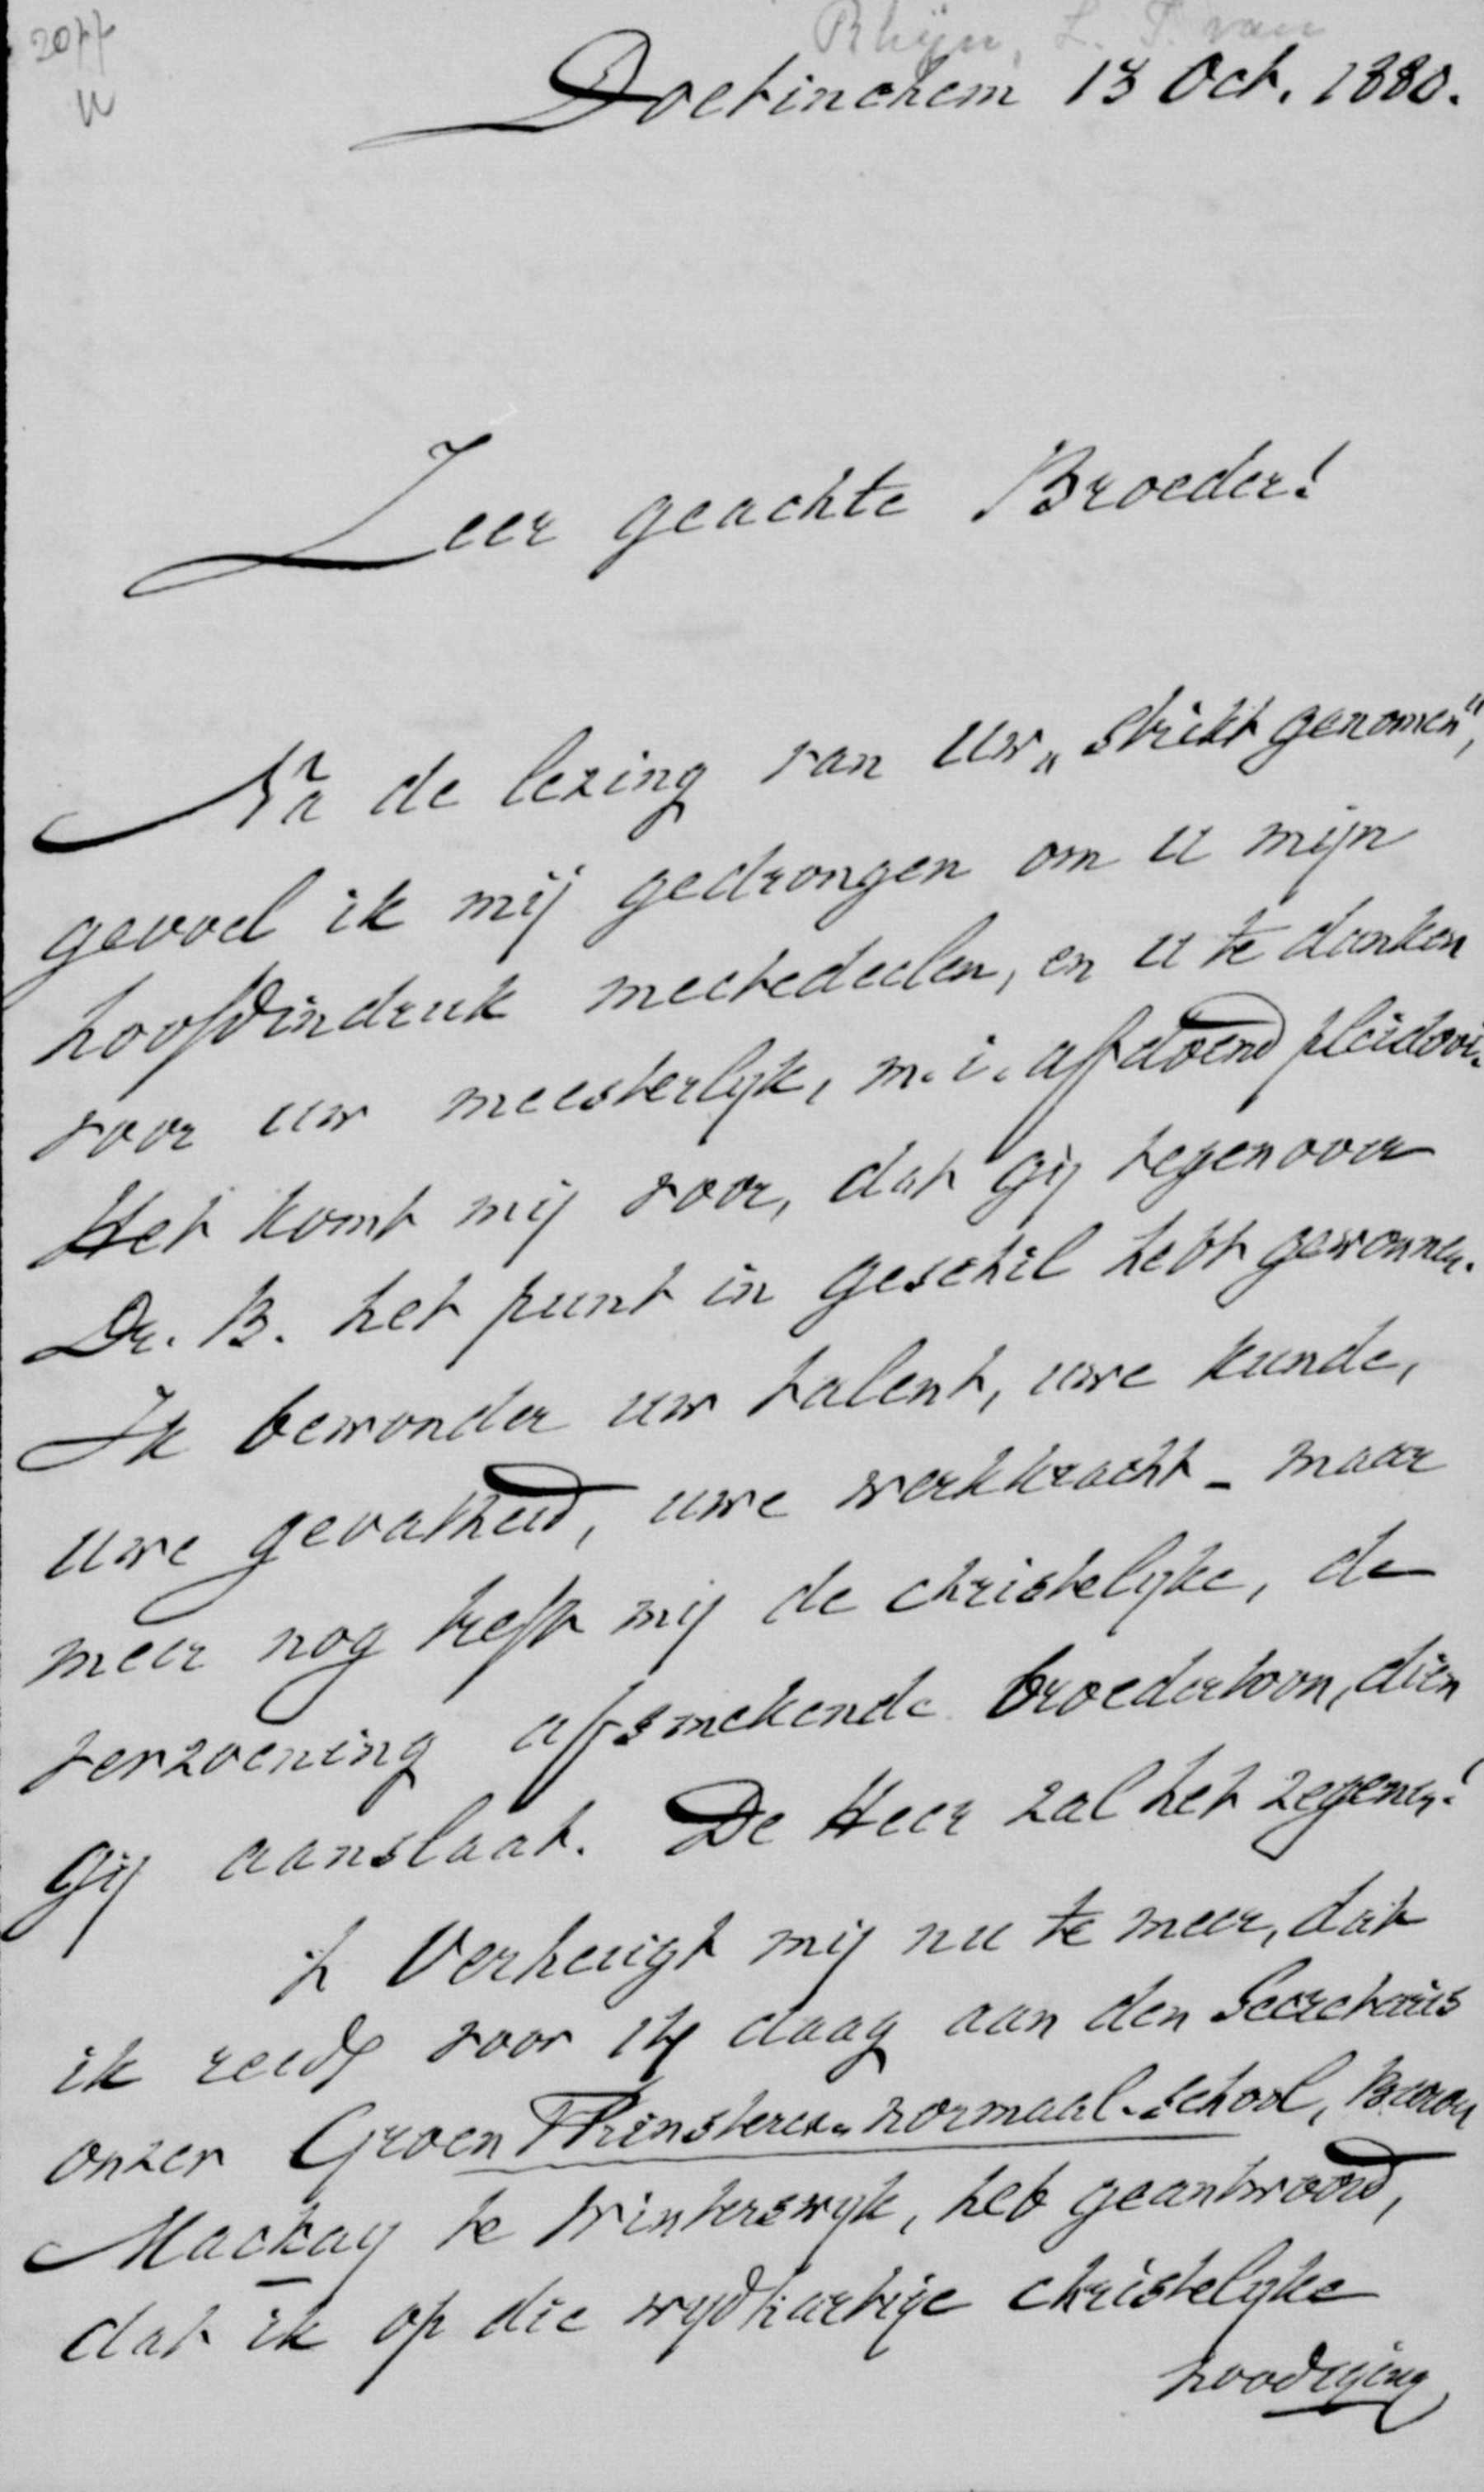 Rhijn, L. J. van
Doetinchem 13 Oct. 1880.
Zeer geachte Broeder!
Nà de lezing van Uw „strikt genomen",
gevoel ik mij gedrongen om U mijn
hoofdindruk meetedeelen, en U te danken
voor uw meesterlyk, m. i. afdoend pleidooi.
Het komt mij voor, dat gij tegenover
Dr. B. het punt in geschil hebt gewonnen.
Ik bewonder uw talent, uwe kunde,
uwe gevatheid, uwe werkkracht – maar
meer nog treft mij de christelyke, de
verzoening afsmekende broedertoon, dien
gij aanslaat. De Heer zal het zegenen!
't Verheugt mij nu te meer, dat
ik reeds voor 14 daag aan den Secretaris
onzer Groen Prinsterer-normaal-school, Baron
Mackay te Winterswyk, heb geantwoord,
dat ik op die wydhartige christelyke
noodiging